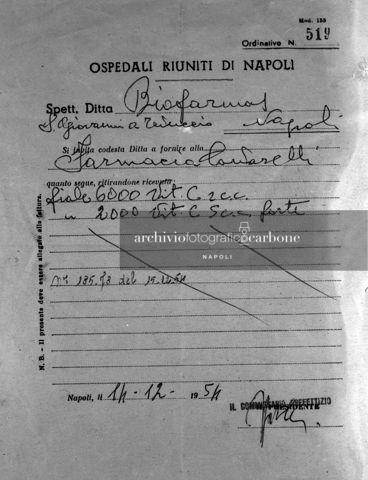 Mod. 155
Ordinativo N. 519
OSPEDALI RIUNITI DI NAPOLI
Spett. Ditta Biofarmos
S. Giovanni a Teduccio Napoli
Si invita codesta Ditta a fornire alla
Farmacia
quanto segue, ritirandone ricevuta:
fiale 6000 Vit C 2 c.c.
" 2000 Vit C 5 c.c. forte
archiviofotograficocarbone
NAPOLI
del 15.12.54
N. B. - Il presente deve essere allegato alla fattura.
Napoli, li 14-12-1954
IL COMMISSARIO PREFETTIZIO
PRESIDENTE